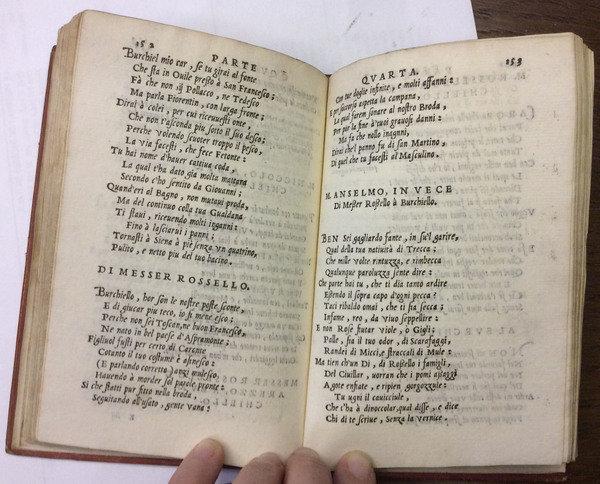 152
PARTE
Burchiel mio car, se tu girai al fonte
Che sta in Ouile presso à San Francesco;
Fà che non ij Pollacco, ne Tedesco
Ma parla Fiorentin, con larga fronte;
Dirai à colei, per cui riceuesti onte,
Che non t'asconda piu sotto il suo desco;
Perche volendo scuoter troppo il pesco,
La via facesti, che fece Fetonte:
Tu hai nome d'hauer cattiua coda,
La qual t'ha dato già molta mattana
Secondo c'ho sentito da Giouanni:
Quand'eri al Bagno, non mutaui proda,
Ma del continuo colla tua Gualdana
Ti staui, riceuendo molti inganni:
Fino à lasciarui i panni:
Tornasti à Siena à piè senza vn quatrino,
Pulito, e netto piu del tuo bacino.
DI MESSER ROSSELLO.
Burchiello, hor son le nostre poste sconte,
E di giucar piu teco, io fi meno esco:
Perche non sei Toscan, ne buon Francesco,
Ne nato in bel paese d'Aspramonte:
Figliuol fusti per certo di Caronte
Cotanto il tuo costume è asinesco:
(E parlando corretto) anzi mulesco.
Hauendo à morder sol parole pronte:
Si che stati pur fitto nella broda,
Seguitando all'usato, gente vana:
153
QVARTA.
Con tue doglie infinite, e molti affanni:
E per soccorso aspetta la campana,
La qual faren sonare al nostro Broda,
Per por la fine à tuoi grauosi danni:
Ma fa che nollo inganni,
Dirai che'l panno fu di san Martino,
Di quel che tu facesti al Masculino.
M. ANSELMO, IN VECE
Di Messer Rosello à Burchiello.
BEN Sei gagliardo fante, in su'l garire,
Qual della tua natiuità di Trecca:
Che mille volte rintuzza, e rimbecca
Qualunque paroluzza sente dire:
Che parte hai tu, che ti dia tanto ardire
Essendo il sopra capo d'ogni pecca?
Taci ribaldo omai, che ti sia secca:
Infame, reo, da viuo seppellire:
E non Rose futar viole, ò Gigli:
Palle, sia il tuo odor, di Scarafaggi,
Randei di Micci, e straccali di Mule:
Ma tien ch'un Dì, di Rosello i famigli,
Del Ciuillar, uorran che i pomi assaggi
Agote enfiate, e ripien gorgozzule:
Tu ugni il cauicciule,
Che t'ha à dinoccolar, qual disse, e dice
Chi di te scriue, Senza la vernice.